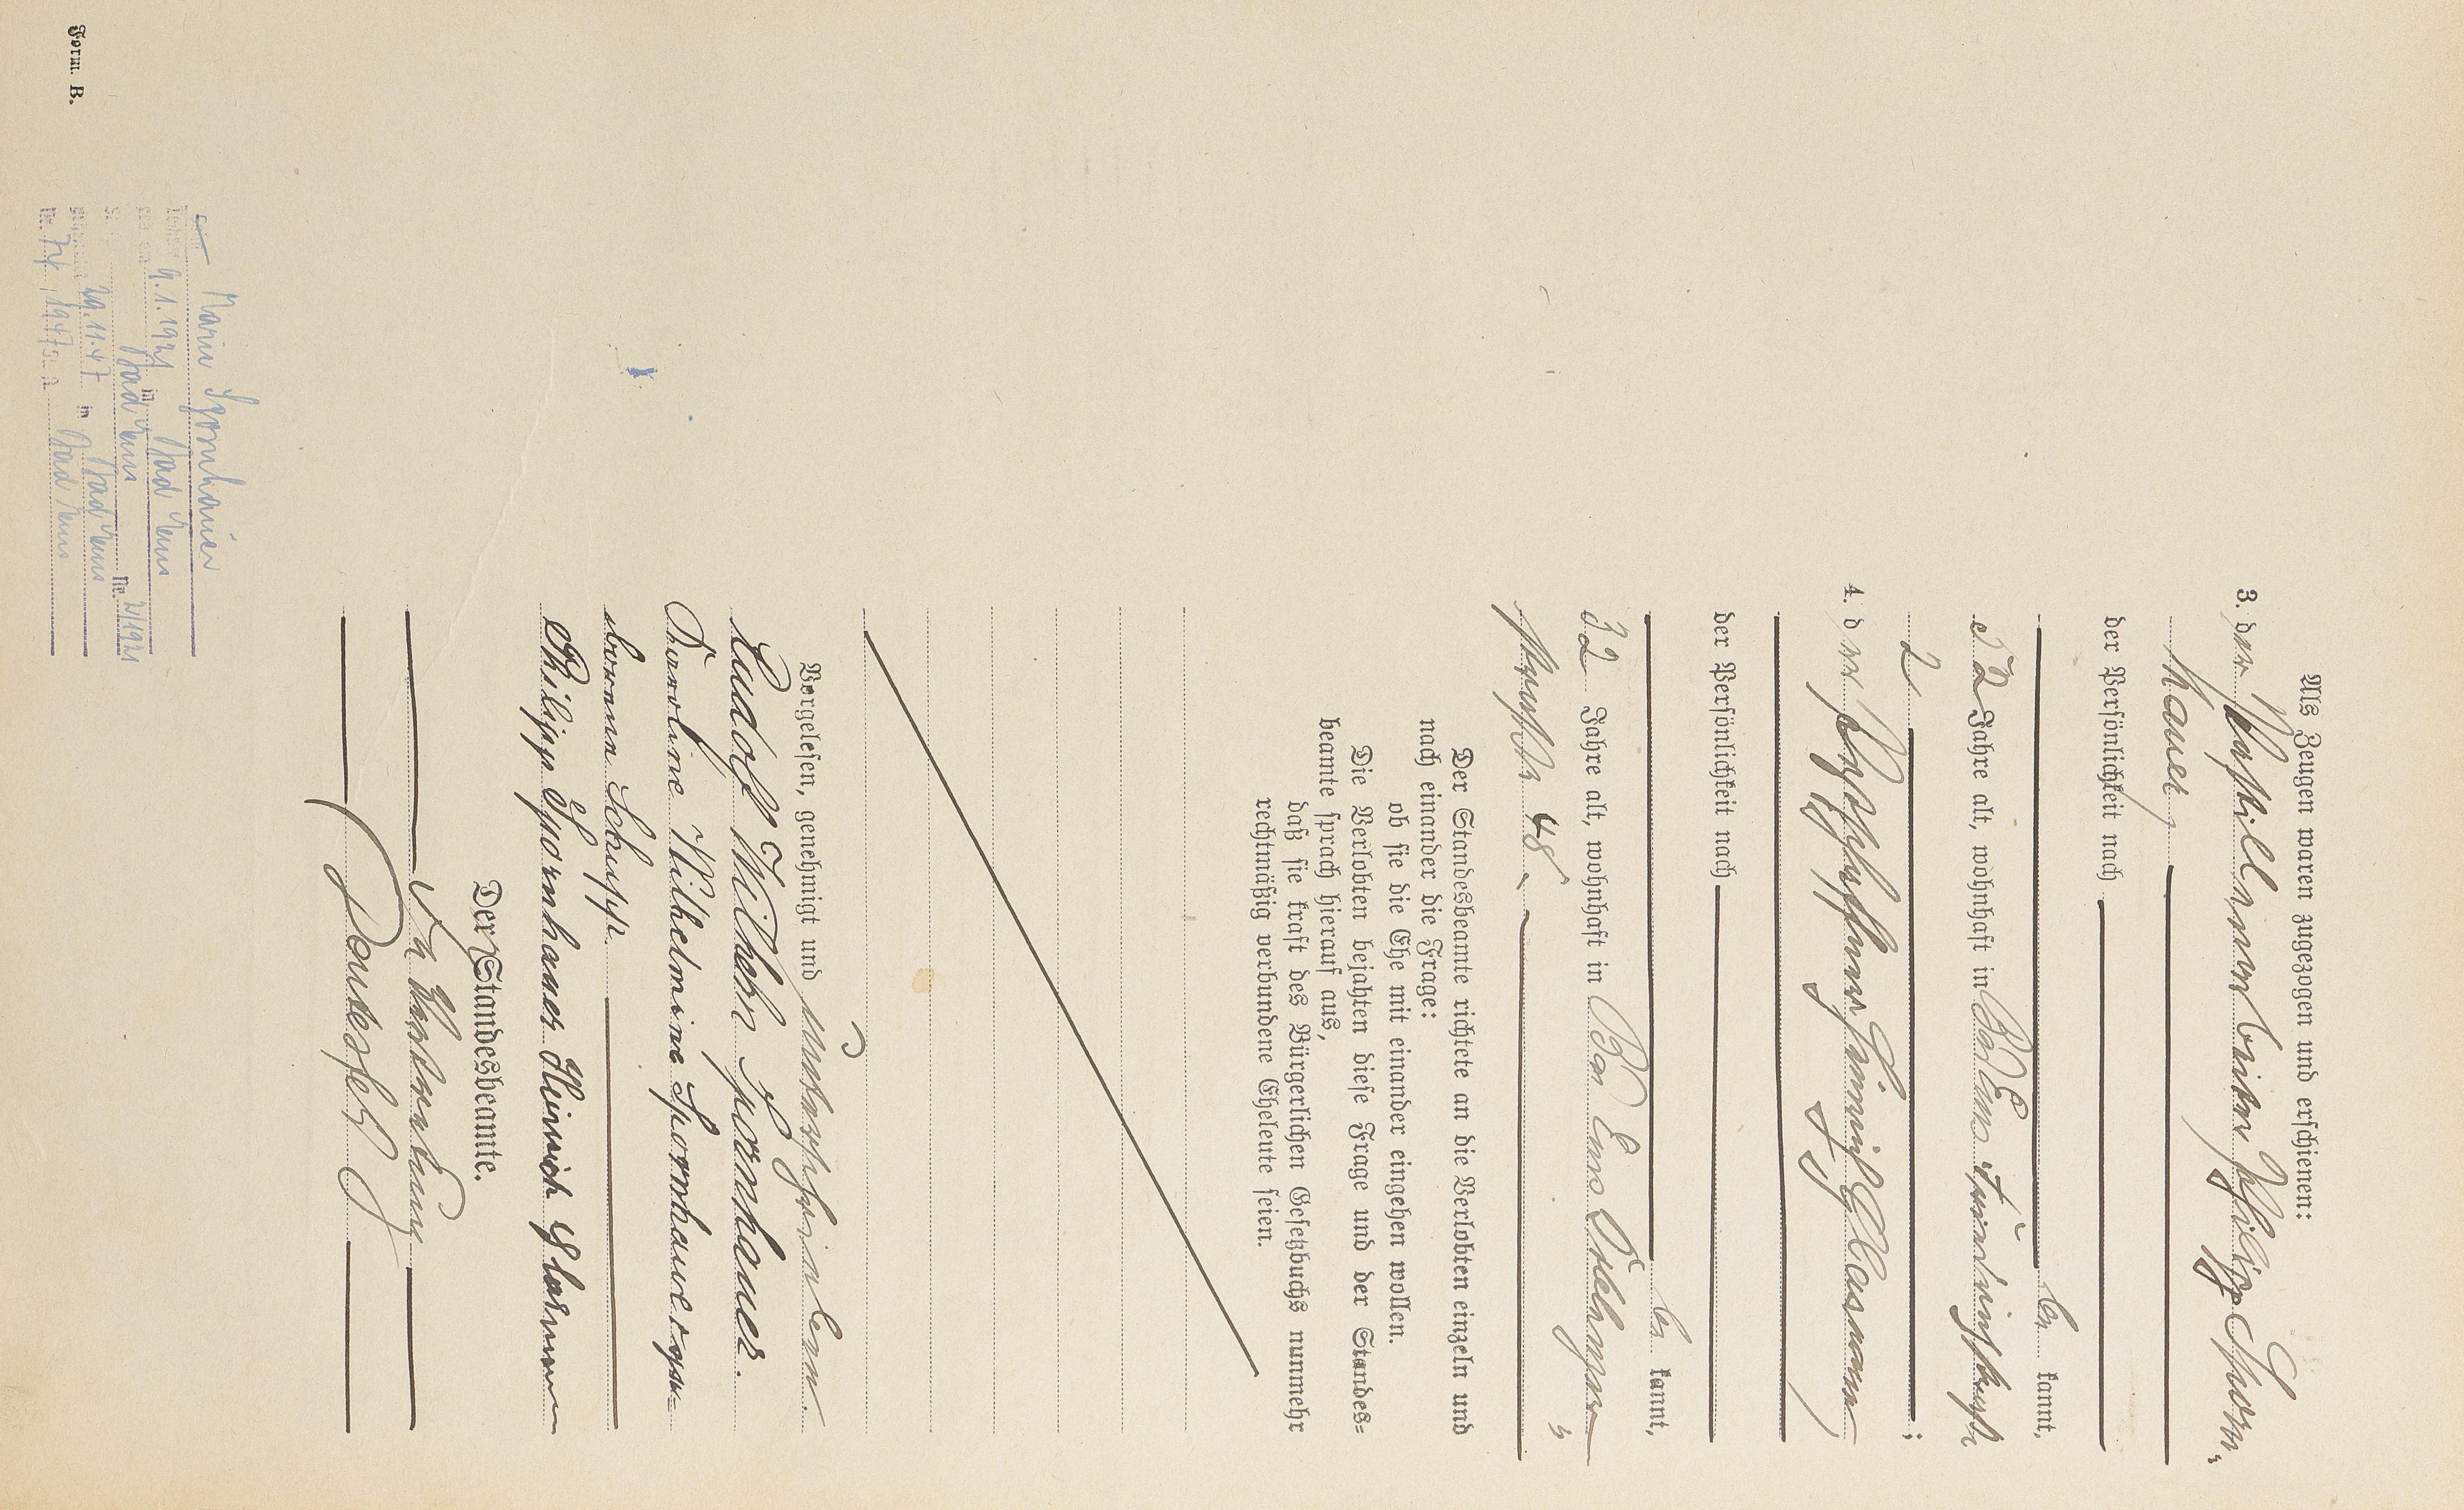 Als Zeugen waren zugezogen und erschienen:
3. der Postillion Philipp Sporn=
hauer,
der Persönlichkeit nach
be kannt,
32 Jahre alt, wohnhaft in Bad Ems, Friedrichstraße
2 ;
4. der Heinrich Glasmann
der Persönlichkeit nach
be kannt,
32 Jahre alt, wohnhaft in Bad Ems
straße 48,
Der Standesbeamte richtete an die Verlobten einzeln und
nach einander die Frage:
ob sie die Ehe mit einander eingehen wollen.
Die Verlobten bejahten diese Frage und der Standes=
beamte sprach hierauf aus,
daß sie kraft des Bürgerlichen Gesetzbuchs nunmehr
rechtmäßig verbundene Eheleute seien.
Vorgelesen, genehmigt und unterschrieben.
Rudolf Wilhelm Spornhauer.
Karoline Wilhelmine Spornhauer ge=
borene Schupp.
Philipp Spornhauer Heinrich Glasmann
Der Standesbeamte.
In Vertretung
Marie Spornhauer
9.1.1921 in Bad Ems
Bad Ems Nr. 2/1921
29.11.47 in Bad Ems
Nr. 74/1947 Bad Ems
Form. B.